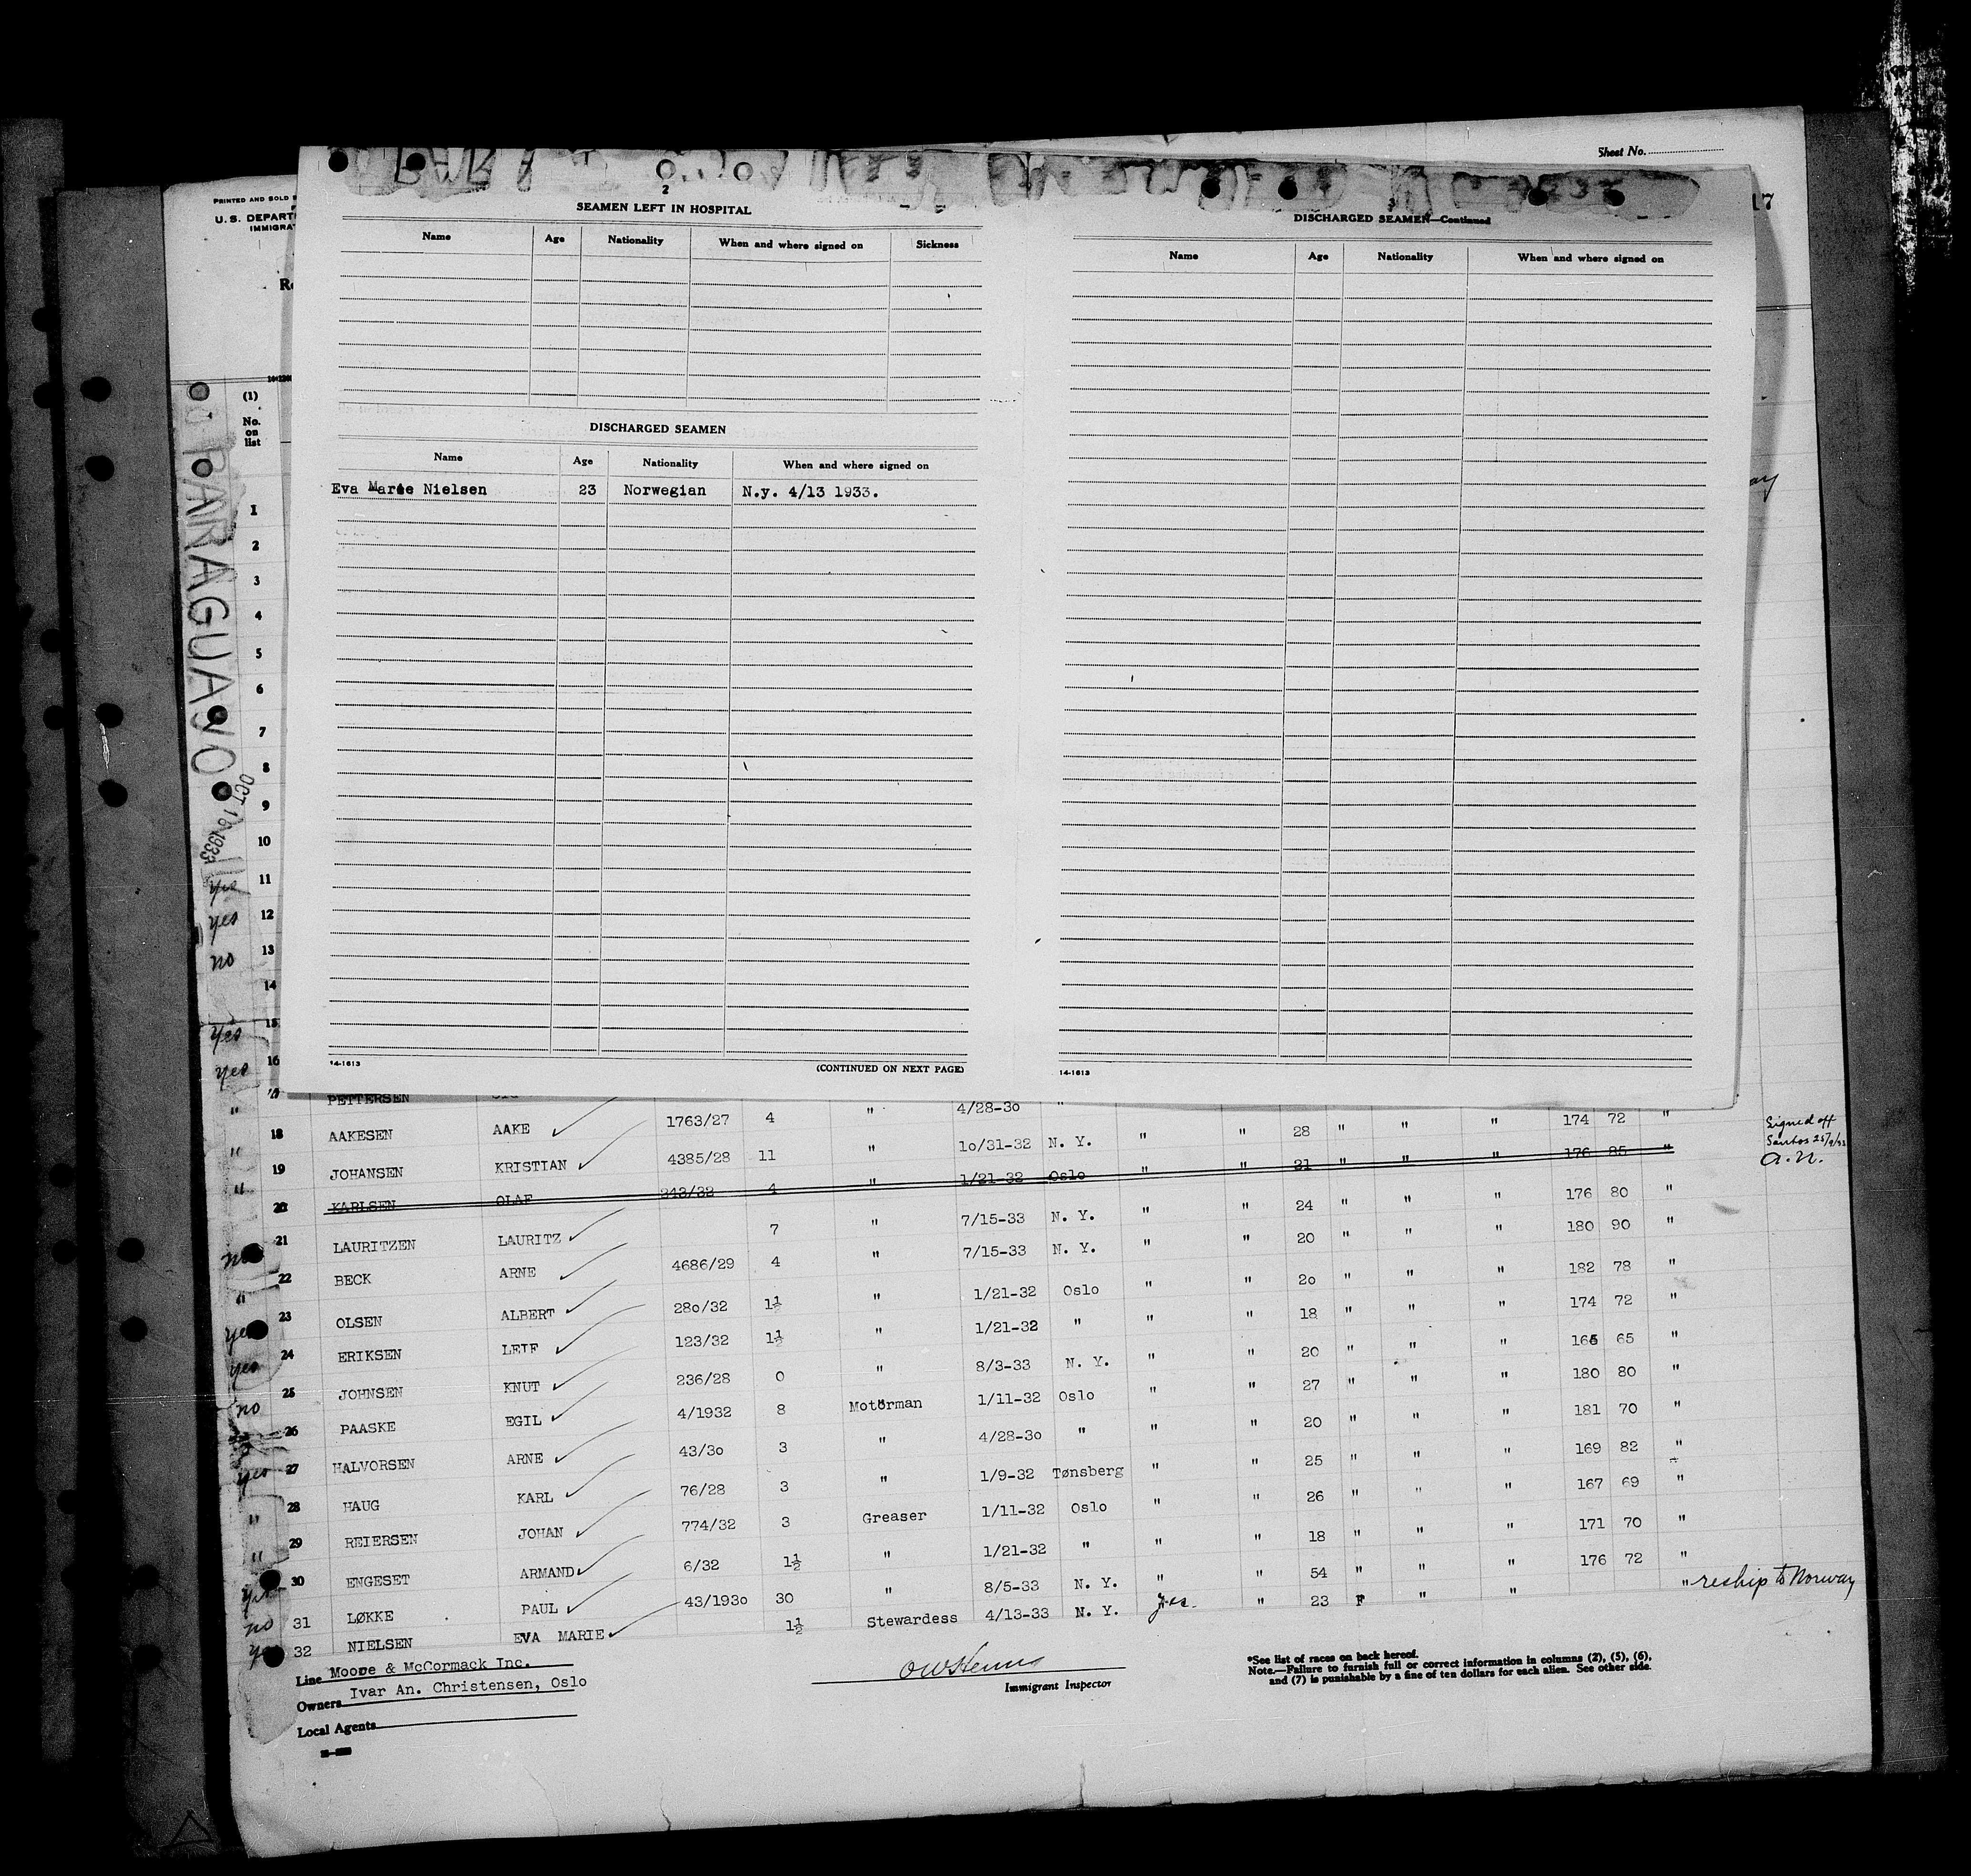 Sheet No.
PRINTED AND SOLD B
U. S. DEPART
IMMIGRA
17
2
SEAMEN LEFT IN HOSPITAL
Name Age Nationality When and where signed on Sickness
DISCHARGED SEAMEN
Name Age Nationality When and where signed on
Eva Marie Nielsen 23 Norwegian N.y. 4/13 1933.
14-1613
(CONTINUED ON NEXT PAGE)
3
DISCHARGED SEAMEN—Continued
Name Age Nationality When and where signed on
14-1613
(1)
No.
on
list
PARAGUAYO
OCT 16 1933
1
2
3
4
5
6
7
8
9
10
yes 11
yes 12
no 13
14
yes 15
yes 16
" PETTERSEN 4/28-30 "
" 18 AAKESEN AAKE 1763/27 4 " 10/31-32 N. Y. " " 28 " " " 174 72 "
" 19 JOHANSEN KRISTIAN 4385/28 11 " 1/21-32 Oslo " " 21 " " " 176 85 "
Signed off
Santos
20 KARLSEN OLAF 243/32 4 " 7/15-33 N. Y. " " 24 " " " 176 80 "
no 21 LAURITZEN LAURITZ 7 " 7/15-33 N. Y. " 20 " " " 180 90 "
" 22 BECK ARNE 4686/29 4 " 1/21-32 Oslo " " 20 " " " 182 78 "
yes 23 OLSEN ALBERT 280/32 1½ " 1/21-32 " " " 18 " " " 174 72 "
yes 24 ERIKSEN LEIF 123/32 1½ " 8/3-33 N. Y. " " 20 " " " 165 65 "
no 25 JOHNSEN KNUT 236/28 0 Motorman 1/11-32 Oslo " " 27 " " " 180 80 "
26 PAASKE EGIL 4/1932 8 " 4/28-30 " " " 20 " " " 181 70 "
yes 27 HALVORSEN ARNE 43/30 3 " 1/9-32 Tønsberg " " 25 " " " 169 82 "
" 28 HAUG KARL 76/28 3 Greaser 1/11-32 Oslo " " 26 " " " 167 69 "
" 29 REIERSEN JOHAN 774/32 3 " 1/21-32 " " " 18 " " " 171 70 "
yes 30 ENGESET ARMAND 6/32 1½ " 8/5-33 N. Y. " " 54 " " " 176 72 "
no 31 LØKKE PAUL 43/1930 30 Stewardess 4/13-33 N. Y. yes. " 23 F " " " reship to Norway
yes 32 NIELSEN EVA MARIE 1½
Line Moore & McCormack Inc.
Owners Ivar An. Christensen, Oslo
Local Agents
Immigrant Inspector
*See list of races on back hereof.
Note.—Failure to furnish full or correct information in columns (2), (5), (6),
and (7) is punishable by a fine of ten dollars for each alien. See other side.